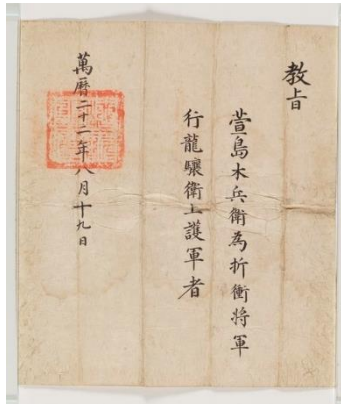 教旨
萱島木兵衛為折衝將軍
行龍驤衛上護軍者
萬曆二十二年八月十九日